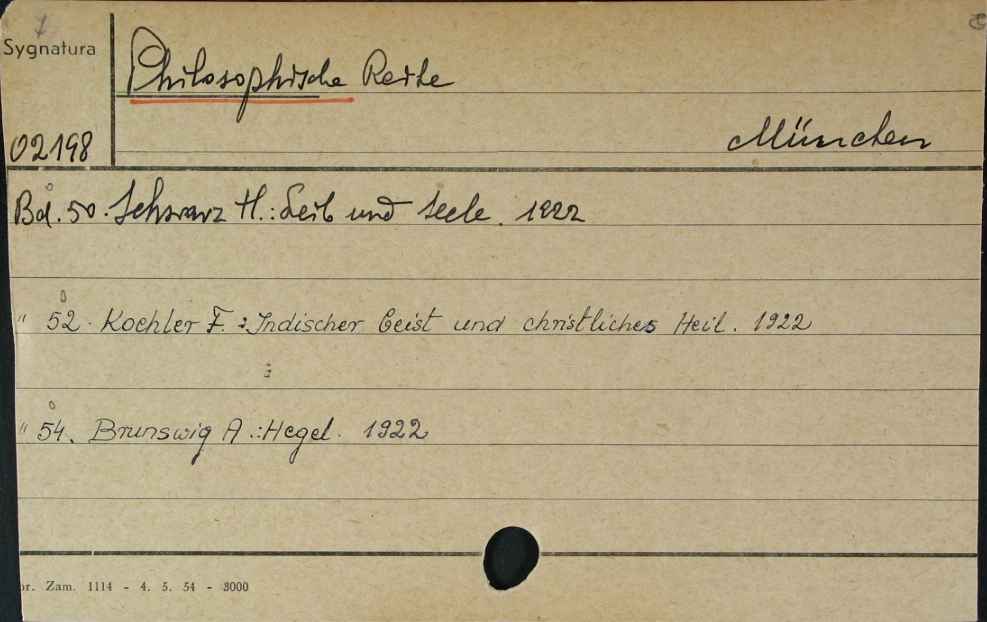 Sygnatura
Philosophische Reihe
02198
München
Bd. 50. Schwarz H.: Leib und Seele. 1922
" 52. Koehler F.: Indischer Geist und christliches Heil. 1922
" 54. Brunswig A.: Hegel. 1922
r. Zam. 1114 - 4. 5. 54 - 3000